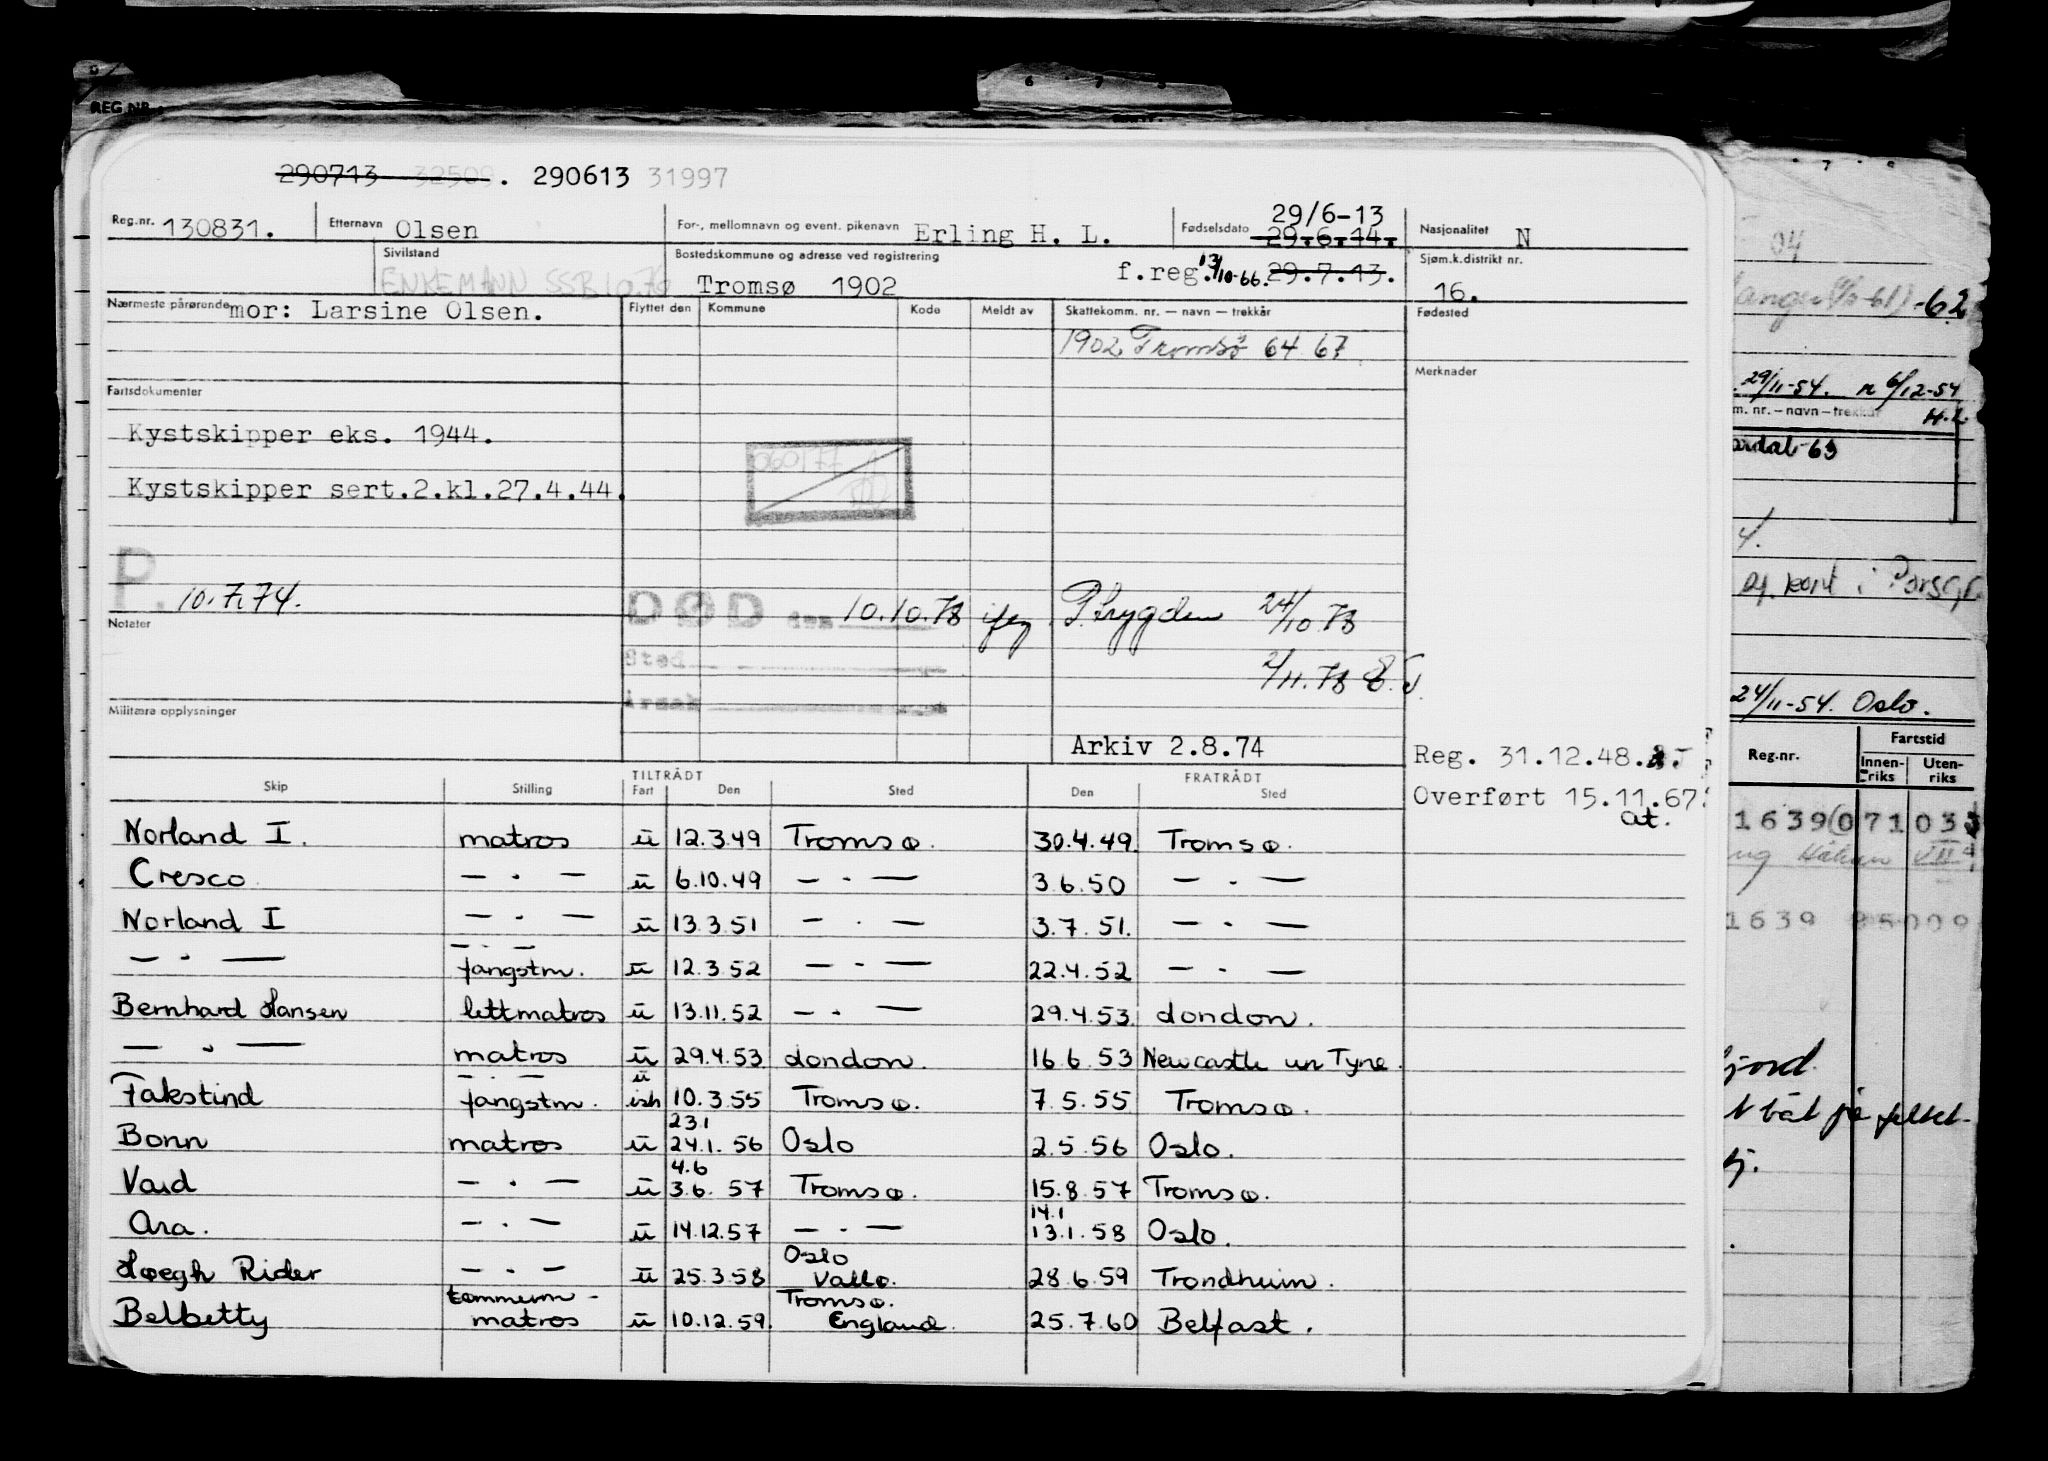 REG.NR.
290713 32509. 290613 31997
Reg.nr. 130831. Etternavn Olsen For-, mellomnavn og event. pikenavn Erling H. L. Fødselsdato 29/6-13 29.6.14. Nasjonalitet N
Sivilstand ENKEMANN SSB 10.76 Bostedskommune og adresse ved registrering Tromsø 1902 f.reg. 13/10-66. 29.7.13. Sjøm.k.distrikt nr. 16.
Nærmeste pårørende mor: Larsine Olsen. Flyttet den Kommune Kode Meldt av Skattekomm. nr. — navn — trekkår Fødested
1902 Tromsø 64 67
Merknader
Fartsdokumenter
Kystskipper eks. 1944.
Kystskipper sert.2.kl.27.4.44.
P. 10.7.74.
DØD den 10.10.78 P.trygden 24/10 78
Notater
Sted
2/11.78
Årsak
Militære opplysninger
Arkiv 2.8.74
Reg. 31.12.48.
Overført 15.11.67.
at.
Skip Stilling TILTRÅDT Fart Den Sted FRATRÅDT Den Sted
Norland I. matros u 12.3.49 Tromsø. 30.4.49. Tromsø.
Cresco — . — u 6.10.49 — . — 3.6.50 — . —
Norland I — . — u 13.3.51 — . — 3.7.51. — . —
— . — — . — fangstm. u 12.3.52 — . — 22.4.52 — . —
Bernhard Hansen lettmatros u 13.11.52 — . — 29.4.53. London.
— . — matros u 29.4.53 London. 16.6.53 Newcastle un Tyne.
Fakstind — . — fangstm. u ish 10.3.55 Tromsø. 7.5.55 Tromsø.
Bonn matros u 23.1 24.1.56 Oslo 2.5.56 Oslo.
Vard — . — u 4.6 3.6.57 Tromsø. 15.8.57 Tromsø.
Ara. — . — u 14.12.57 — . — 14.1 13.1.58 Oslo.
Høegh Rider — . — u 25.3.58 Oslo Vallø. 28.6.59 Trondheim.
Belbetty tømmerm - matros u 10.12.59. Tromsø. England. 25.7.60 Belfast.
04
-62
29/11-54. n 6/12-54
m. nr. — navn — trekkår H.L
-63
4.
24/11-54. Oslo.
Reg.nr. Fartstid
Innen-riks Uten-riks
1639 071 033
1639 85009
fjord.
t båt på feltet.